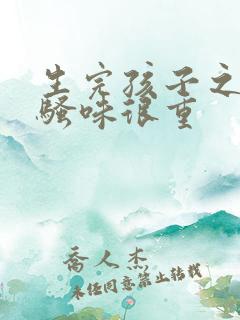 生完孩子之
骚味很重
乔人杰
未经同意禁止转载